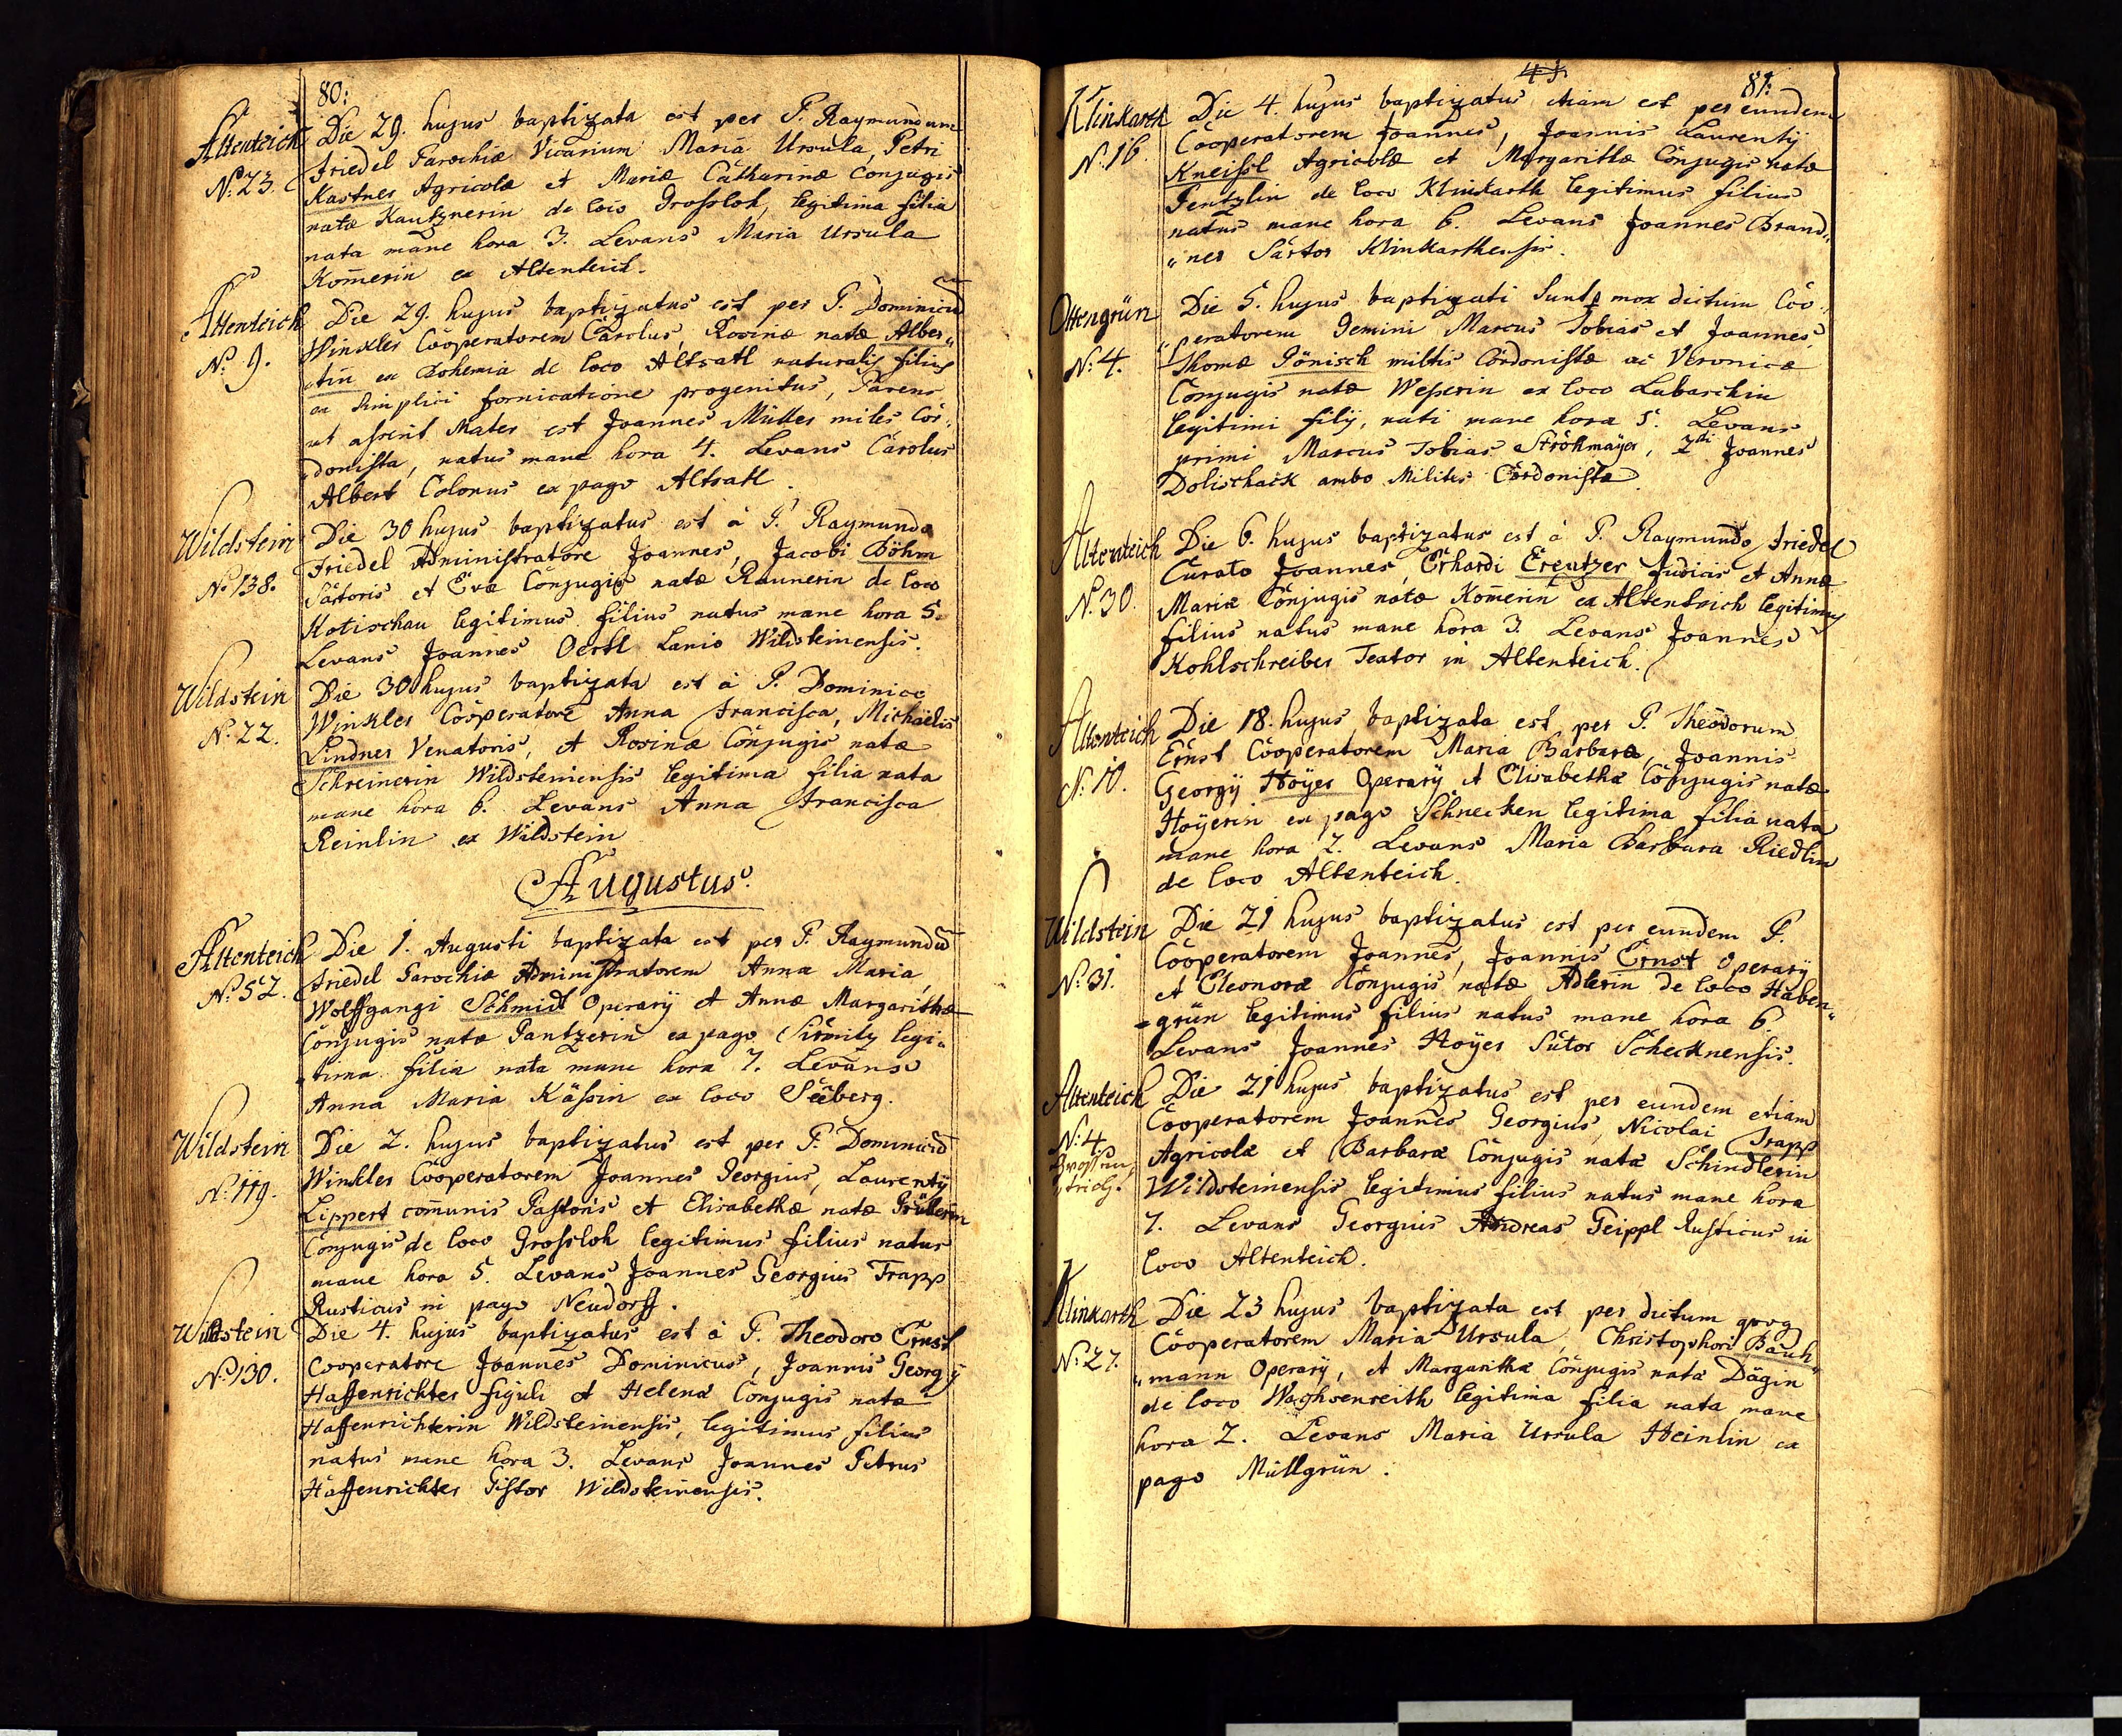 80:
Altenteich
N: 23.
Die 29. hujus baptizata est per P. Raymundum
Friedel Parochiæ Vicarium Maria Ursula, Petri
Kastner Agricolæ et Mariæ Catharinæ Conjugis
natæ Kautznerin de loco Grossloh, legitima filia
nata mane hora 3. Levans Maria Ursula
Kom̄erin ex Altenteich.
Altenteich
N: 9.
Die 29. hujus baptizatus est per P. Dominicū
Winkler Cooperatorem Carolus, Rosinæ natæ Alber„
„tin ex Bohemia de loco Altsatl naturalis filius
ex simplici fornicatione progenitus, Parens
ut asserit Mater est Joannes Müller miles Cor„
„donista, natus mane hora 4. Levans Carolus
Albert Colonus ex pago Altsatl.
Wildstein
N: 138.
Die 30 hujus baptizatus est à P. Raymundo
Friedel Administratore Joannes, Jacobi Böhm
Sartoris et Evæ Conjugis natæ Raunerin de loco
Kotischau legitimus filius natus mane hora 5.
Levans Joannes Oertl Lanio Wildsteinensis.
Wildstein
N: 22.
Die 30 hujus baptizata est à P. Dominico
Winkler Cooperatore Anna Francisca, Michäelis
Lindner Venatoris, et Rosinæ Conjugis natæ
Schreinerin Wildsteinensis legitima filia nata
mane hora 6. Levans Anna Francisca
Reinlin ex Wildstein
Augustus.
Altenteich
N: 52.
Die 1. Augusti baptizata est per P. Raymundū
Friedel Parochiæ Administratorem Anna Maria,
Wolffgangi Schmidt Operarij et Annæ Margarithæ
Conjugis natæ Pantzerin ex pago Sirmitz legi„
„tima filia nata mane hora 7. Levans
Anna Maria Kässin ex loco Seeberg.
Wildstein
N: 119.
Die 2. hujus baptizatus est per P. Dominicū
Winkler Cooperatorem Joannes Georgius, Laurentij
Lippert com̄unis Pastoris et Elisabethæ natæ
Conjugis de loco Grossloh legitimus filius natus
mane hora 5. Levans Joannes Georgius Trapp
Rusticus in pago Neudorff.
Wildstein
N: 130.
Die 4. hujus baptizatus est à P. Theodoro Ernst
Cooperatore Joannes Dominicus, Joannis Georgij
Haffenrichter figuli et Helenæ Conjugis natæ
Haffenrichterin Wildsteinensis, legitimus filius
natus mane hora 3. Levans Joannes Petrus
Haffenrichter Pistor Wildsteinensis.
41
81:
Klinkarth
N: 16.
Die 4. hujus baptizatus etiam est per eundem
Cooperatorem Joannes, Joannis Laurentij
Kneissl Agricolæ et Margarithæ Conjugis natæ
Pentzlin de loco Klinkarth legitimus filius
natus mane hora 6. Levans Joannes Brand„
„ner Sartor Klinkarthensis.
Ottengrün
N: 4.
Die 5. hujus baptizati sunt p mox dictum Coo„
„peratorem Gemini Marcus Tobias et Joannes,
Thomæ Pönisch militis Cordonistæ ac Veronicæ
Conjugis natæ Wesserin ex loco Labaschin
legitimi filij, nati mane hora 5. Levans
primi Marcus Tobias Ströhmaÿer, 2di Joannes
Dolischack ambo Milites Cordonistæ.
Altenteich
N: 30.
Die 6. hujus baptizatus est à P. Raymundo Friedel
Curato Joannes, Erhardi Creutzer Judicis et Annæ
Mariæ Conjugis natæ Kom̄erin ex Altenteich legitimus
filius natus mane hora 3. Levans Joannes
Kohlschreiber Textor in Altenteich.
Altenteich
N: 10.
Die 18. hujus baptizata est per P. Theodorum
Ernst Cooperatorem Maria Barbara, Joannis
Georgij Hoÿer Operarij et Elisabethæ Conjugis natæ
Hoÿerin ex pago Schnecken legitima filia nata
mane hora 2. Levans Maria Barbara Riedlin
de loco Altenteich.
Wildstein
N: 31.
Die 21 hujus baptizatus est per eundem P.
Cooperatorem Joannes, Joannis Ernst Operarij
et Eleonoræ Conjugis natæ Adlerin de loco Haben„
„grün legitimus filius natus mane hora 6.
Levans Joannes Hoÿer Sutor Schecknensis.
Altenteich
N: 4.
Die 21 hujus baptizatus est per eundem etiam
Cooperatorem Joannes Georgius, Nicolai Trapp
Agricolæ et Barbaræ Conjugis natæ Schindlerin
Wildsteinensis legitimus filius natus mane hora
7. Levans Georgius Andreas Geippl Rusticus in
loco Altenteich.
Klinkarth
N: 27.
Die 23 hujus baptizata est per dictum quoq
Cooperatorem Maria Ursula, Christophori Bauh„
„mann Operarij, et Margarithæ Conjugis natæ Dägin
de loco legitima filia nata mane
hora 2. Levans Maria Ursula Heinlin ex
pago Müllgrün.